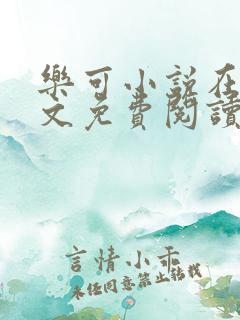 樂可小說在
文免費閱讀
言情小乖
未任同意禁止转载